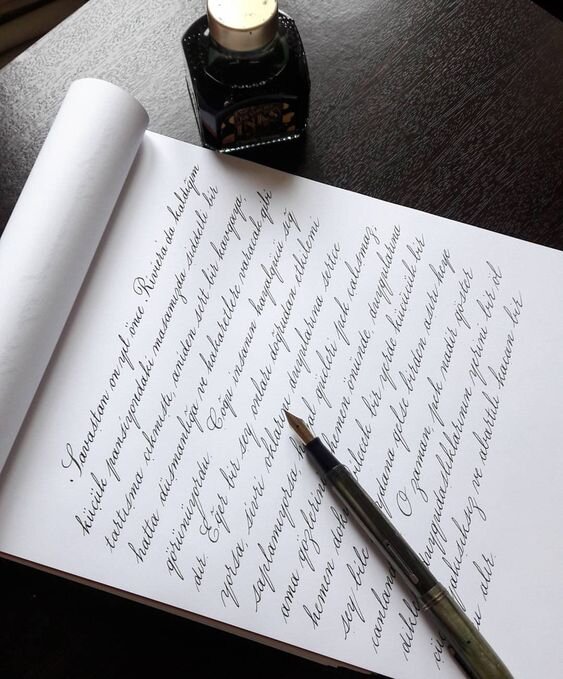 Savaştan on yıl önce, Riviera'da kaldığım
küçük pansiyondaki masamızda şiddetli bir
tartışma çıkmıştı, aniden sert bir kavgaya,
hatta düşmanlığa ve hakaretlere varacak gibi
görünüyordu. Çoğu insanın hayalgücü sığ
dır. Eğer bir şey onları doğrudan etkilemi
yorsa, sivri oklarını duygularına sertçe
saplamıyorsa güçleri pek çalışmaz;
ama gözlerinin hemen önünde, duygularına
hemen bir yerde küçücük bir
şey bile gelse birden aşırı heye
O zaman, pek nadir göster
duygudaşlıklarının yerini bir öl
ve abartılı bir
alır.